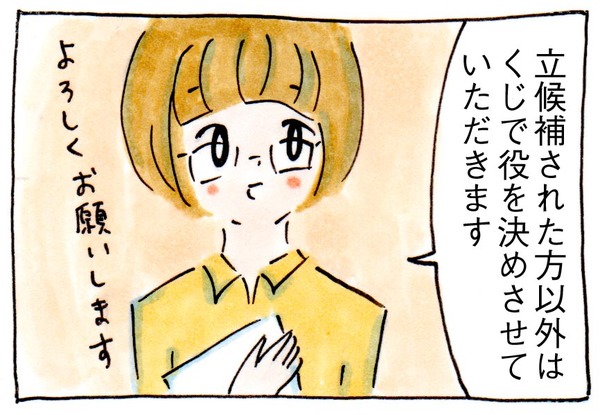 立候補された方以外は
くじで役を決めさせて
いただきます
よろしくお願いします